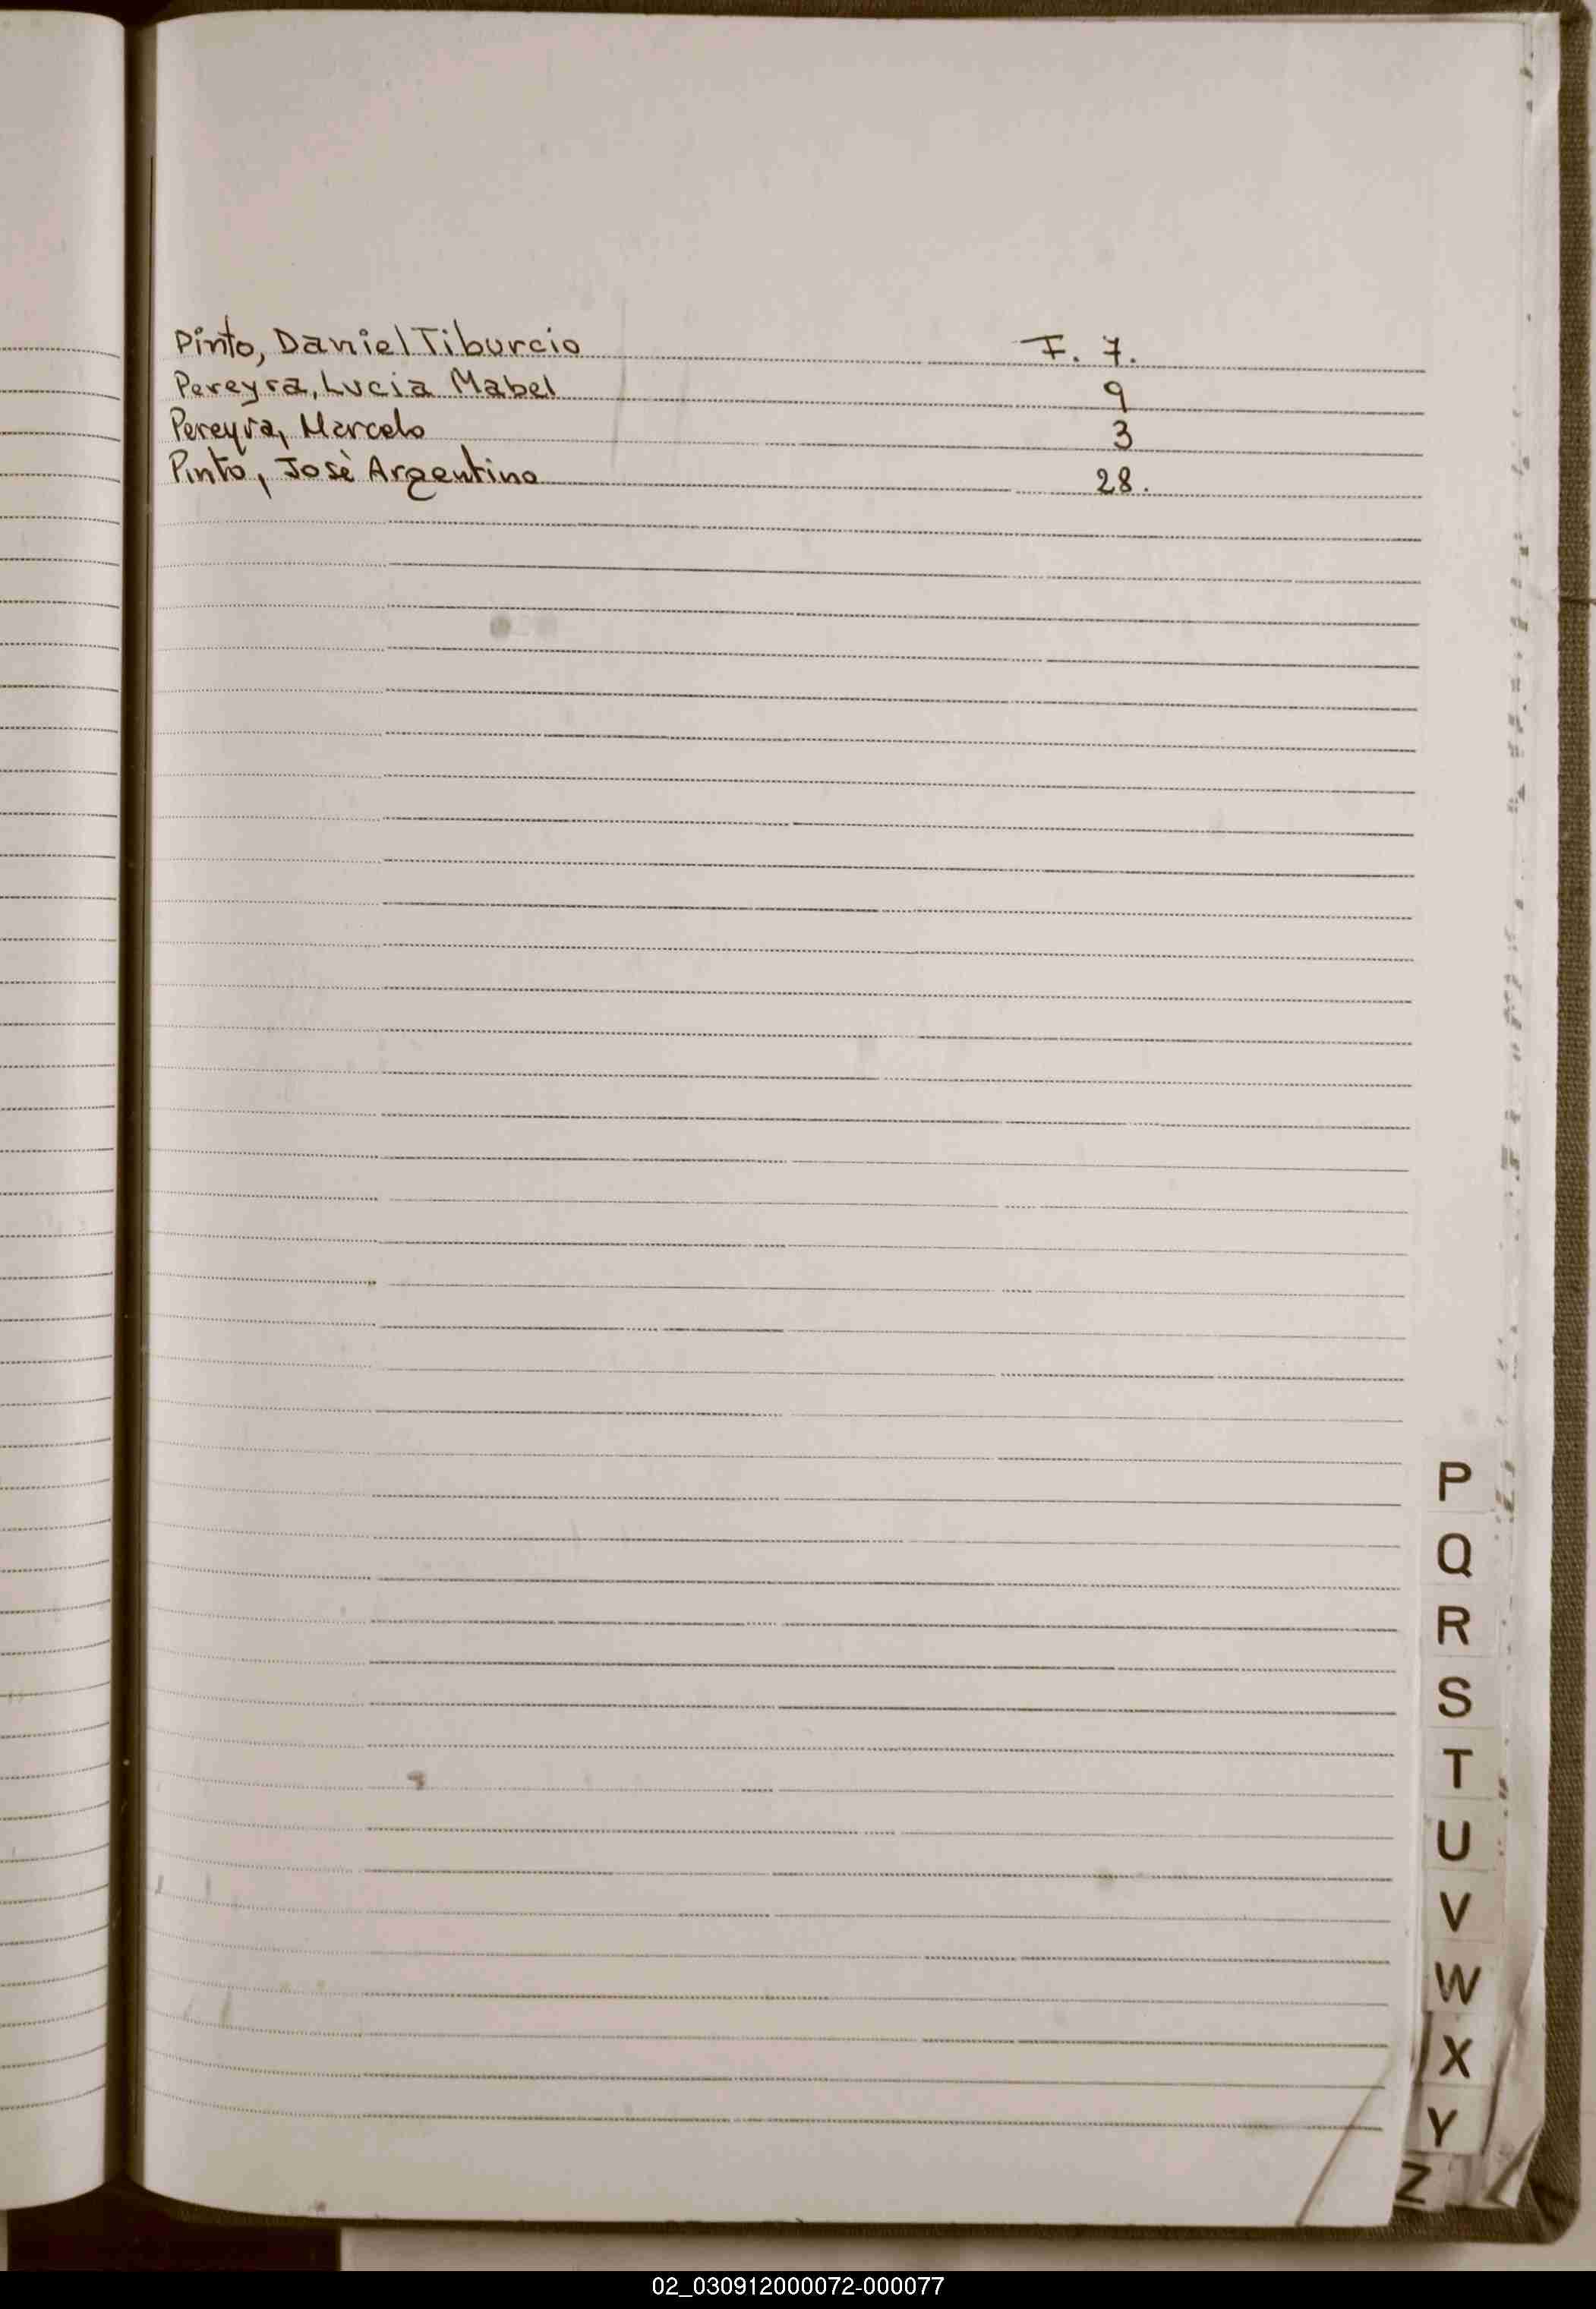 Pinto, Daniel Tiburcio F. 7.
Pereyra, Lucia Mabel 9
Pereyra, Marcelo 3
Pinto, Josè Argentino 28.
P
Q
R
S
T
U
V
W
X
Y
Z
02_030912000072-000077